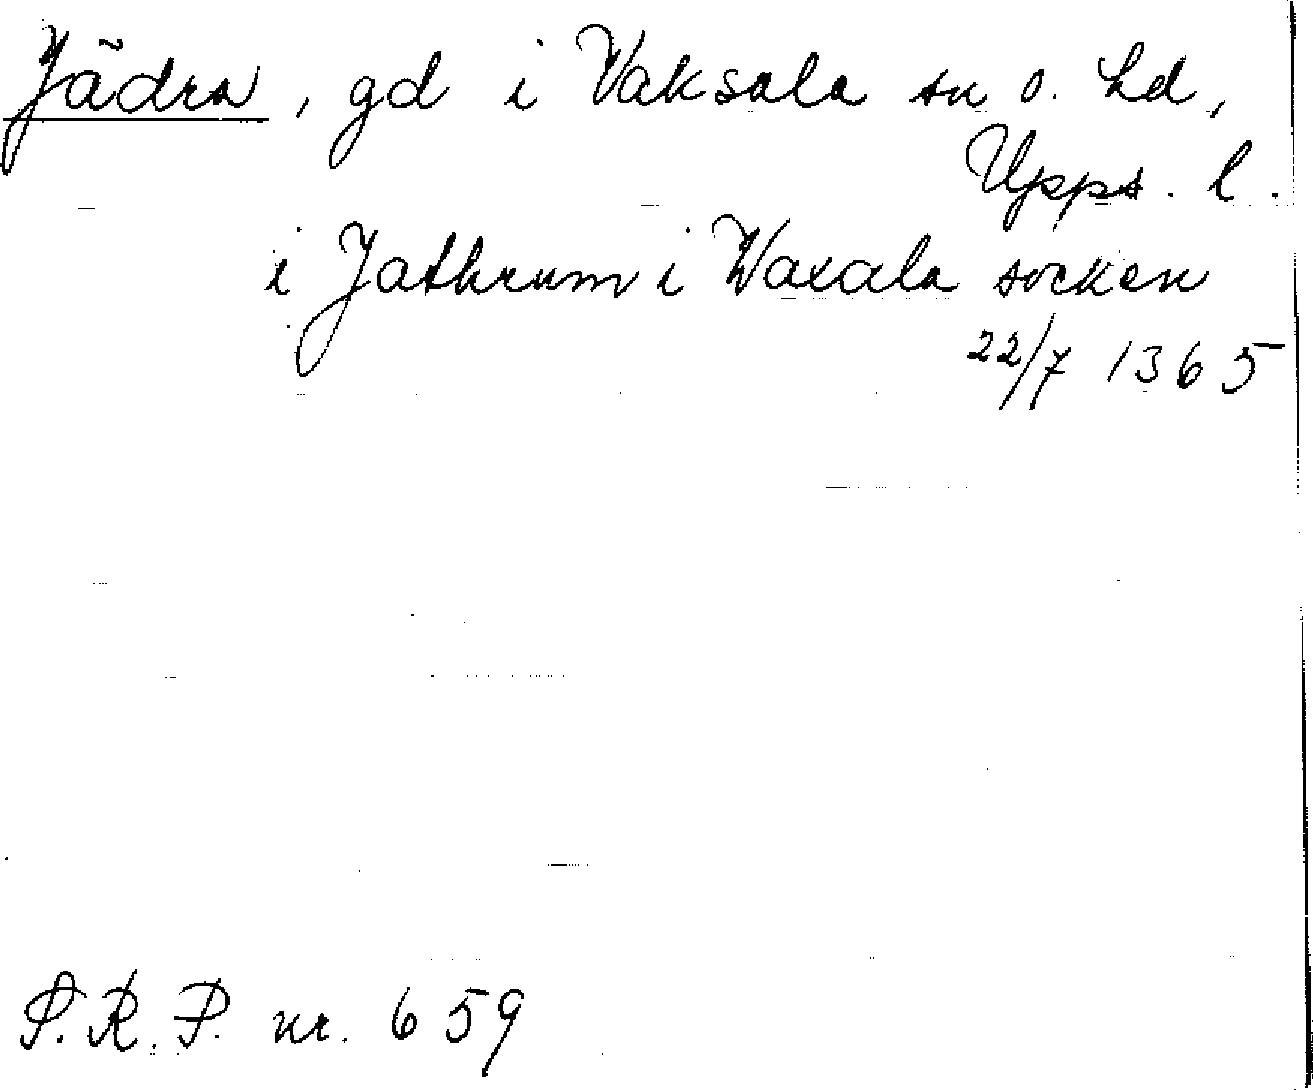 Jädra, gd i Vaksala sn o. hd,
Upps. l.
i Jathrum i Waxala socken
22/7 1365
S.R.P. nr. 659